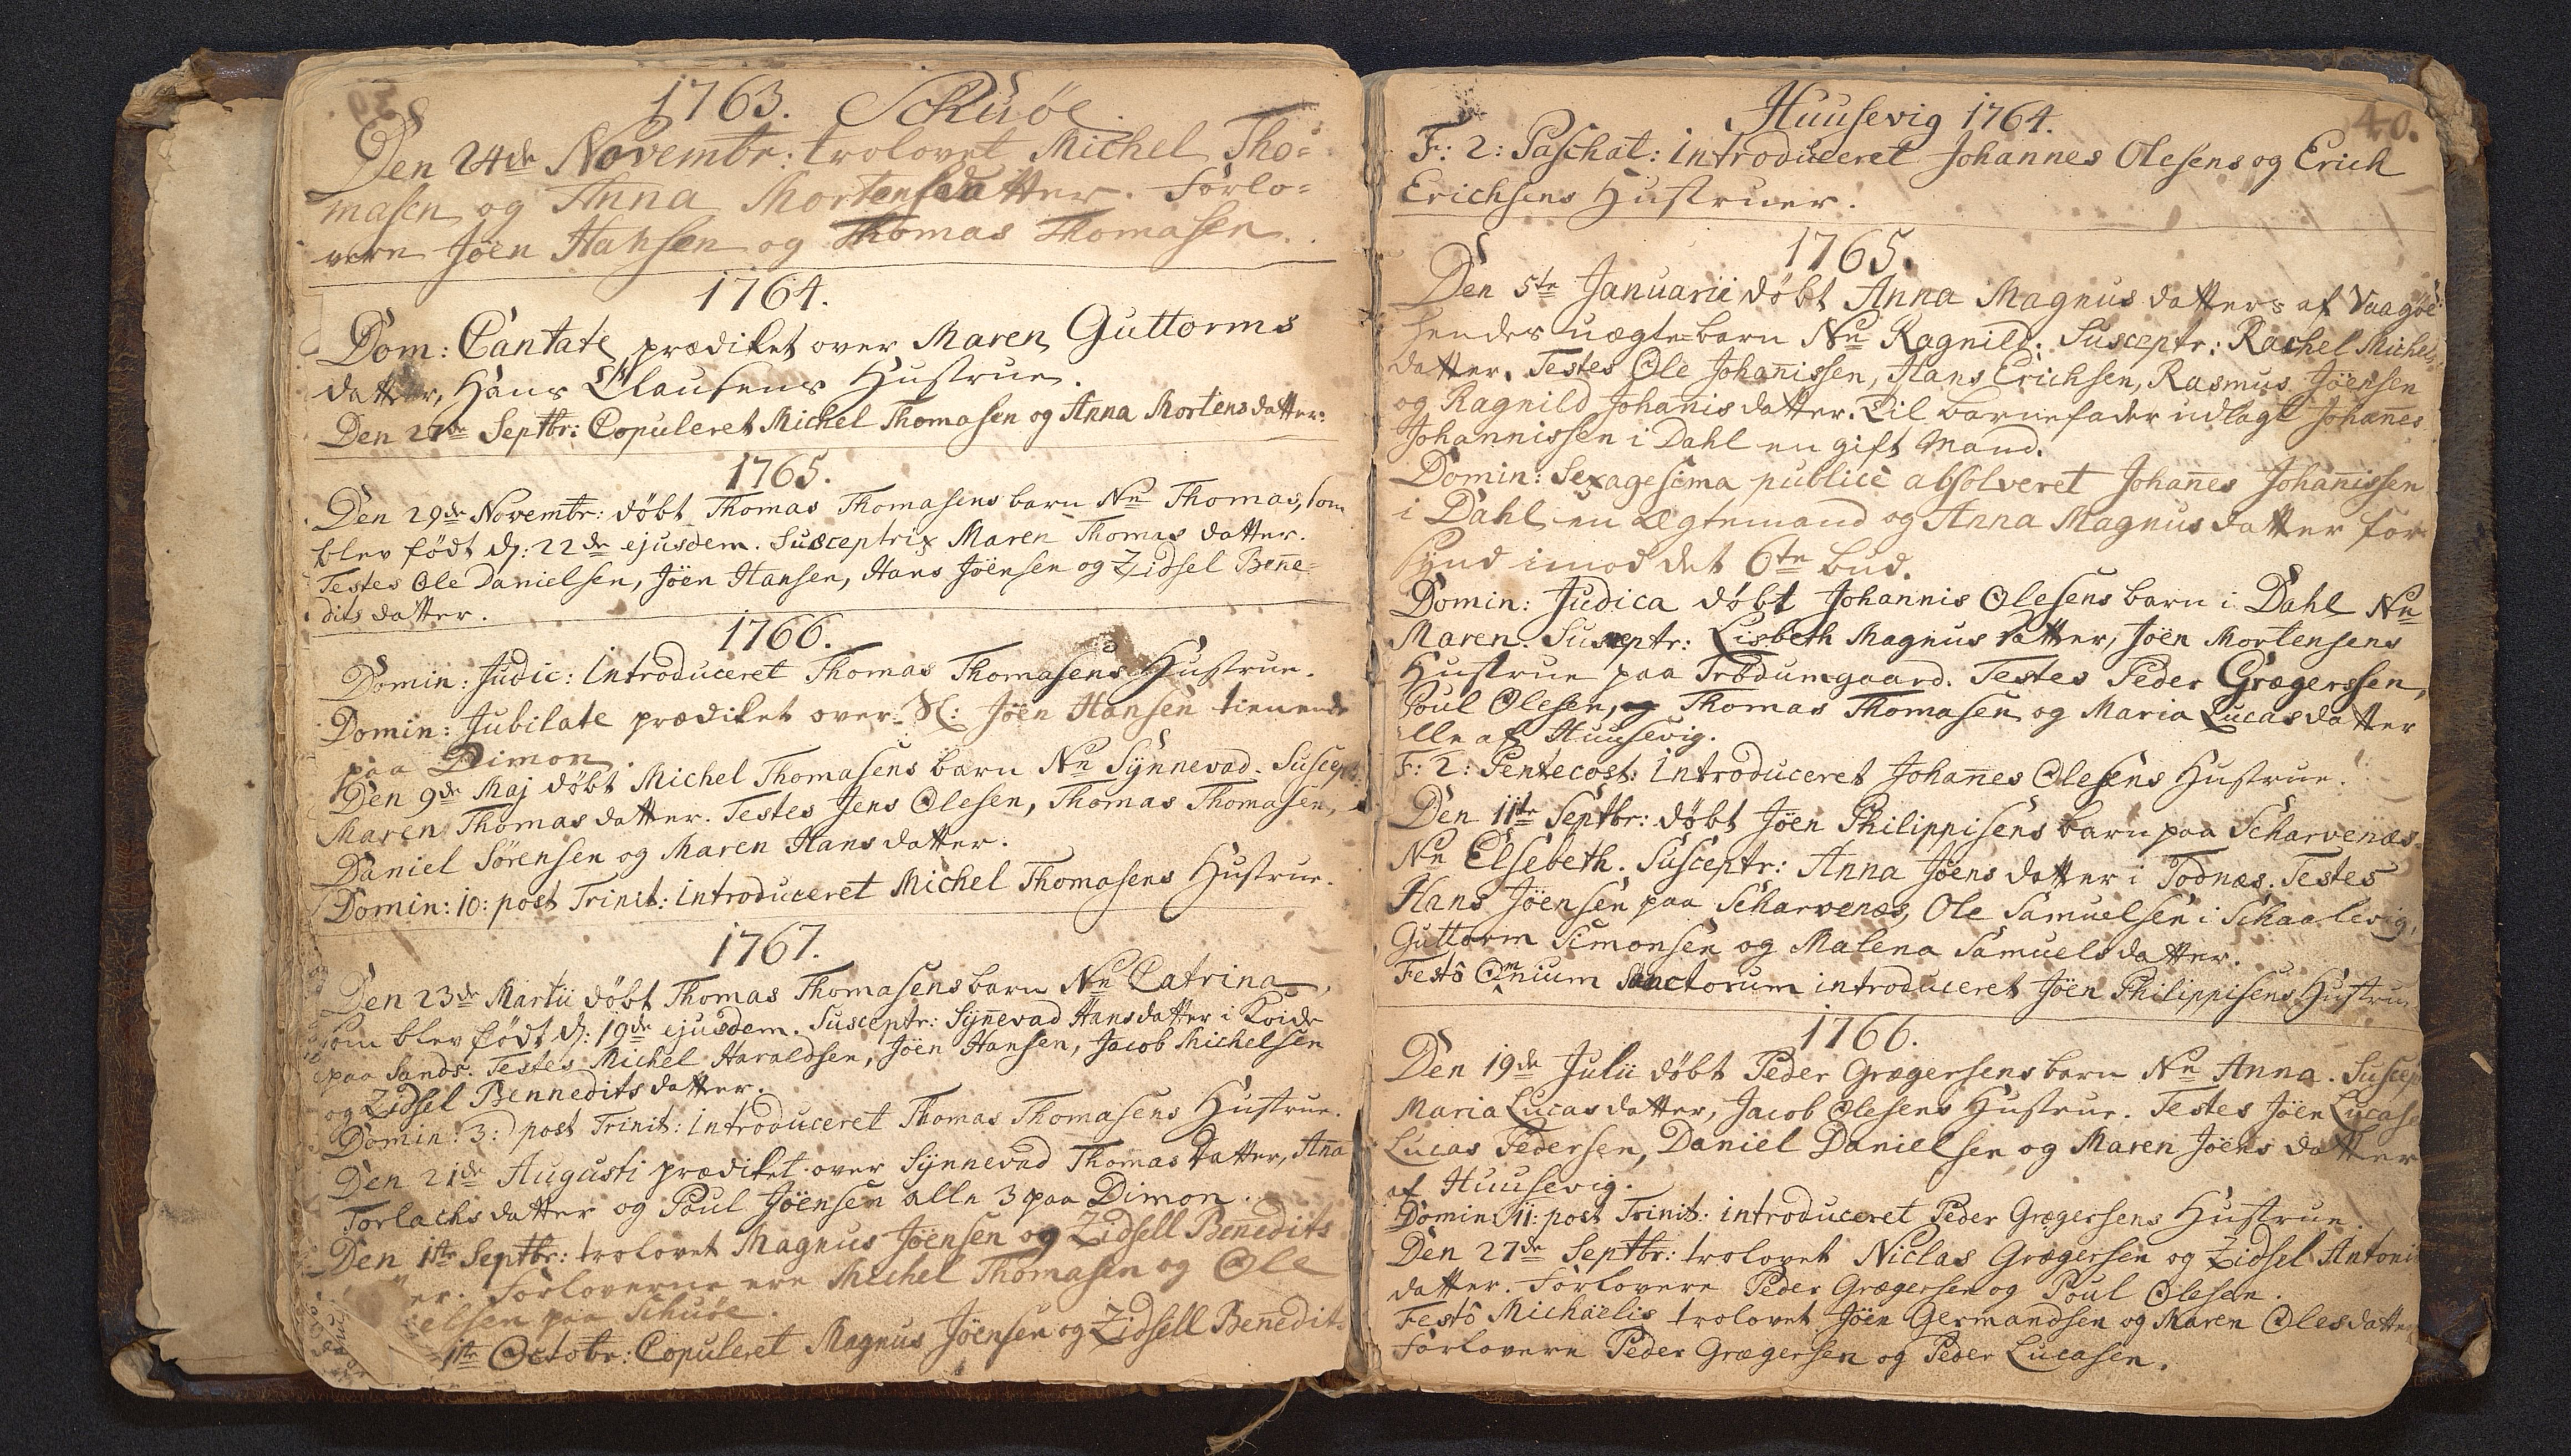 1763. Schuöe.
Den 24de Novembr: trolovet Michel Tho=
masen og Anna Mortensdatter. Forlo=
vere Jöen Hansen og Thomas Thomasen.
1764.
Dom: Cantate prædiket over Maren Guttorms
datter, Hans Clausens Hustrue.
Den 27de Septbr: Copuleret Michel Thomasen og Anna Mortensdatter.
1765.
Den 29de Novembr: döbt Thomas Thomasens barn Nn Thomas, som
blev födt d: 22de ejusdem. Susceptrix Maren Thomas datter.
Testes Ole Danielsen, Jöen Hansen, Hans Jöensen og Zidsel Bene=
dits datter.
1766.
Domin: Judic: Introduceret Thomas Thomasens Hustrue.
Domin: Jubilate prædiket over Jöen Hansen tienende
paa Dimon.
Den 9de Maj döbt Michel Thomasens barn Nn Synnevad. Suscept:
Maren Thomas datter. Testes Jens Olesen, Thomas Thomasen,
Daniel Sörensen og Maren Hans datter.
Domin: 10: post Trinit: introduceret Michel Thomasens Hustrue.
1767.
Den 23de Martii döbt Thomas Thomasens barn Nn Catrina,
som blev födt d: 19de ejusdem. Susceptr: Synevad Hansdatter i Koide
paa Sands. Testes Michel Haraldsen, Jöen Hansen, Jacob Michelsen
og Zidsel Bennedits datter.
Domin: 3: post Trinit: introduceret Thomas Thomasens Hustrue.
Den 21de Augusti prædiket over Synnevad Thomas datter, Ana
Torlachs datter og Poul Jöensen alle 3 paa Dimon.
Den 1te Septbr: trolovet Magnus Jöensen og Zidsell Benedits
er. Forloverne ere Michel Thomasen og Ole
elsen paa Schuöe.
1te Octobr: Copuleret Magnus Jöensen og Zidsell Benedits
40.
Huusevig 1764.
F: 2: Paschat: introduceret Johannes Olesens og Erich
Erichsens Hustruer.
1765.
Den 5te Januarii döbt Anna Magnus datters af Vaagöe
hendes uægte=barn Nn Ragnild. Susceptr: Rachel Michels
datter. Testes Ole Johanissen, Hans Erichsen, Rasmus Jöensen
og Ragnild Johanis datter. Til barnefader udlagt Johanes
Johannissen i Dahl en gift Mand.
Domin: Sexagesima publicè absolveret Johanes Johanissen
i Dahl en Ægtemand og Anna Magnus datter for
Synd imod det 6te bud.
Domin: Judica döbt Johannis Olesens barn i Dahl Nn
Maren. Susceptr: Lisbeth Magnus datter, Jöen Mortensens
Hustrue paa Trödumgaard. Testes Peder Grægerssen,
Poul Olesen, og Thomas Thomasen og Maria Lucasdatter
alle af Huusevig.
F: 2: Pentecost: introduceret Johanes Olesens Hustrue.
Den 11te Septbr: döbt Jöen Philippisens barn paa Scharvenæs
Nn Elsebeth. Susceptr: Anna Jöens datter i Todnæs. Testes
Hans Jöensen paa Scharvenæs, Ole Samuelsen i Schaalevig,
Guttorm Simonsen og Malena Samuelsdatter.
Festô Omnium Sanctorum introduceret Jöen Philippisens Hustrue
1766.
Den 19de Julii döbt Peder Grægersens barn Nn Anna. Suscep
Maria Lucas datter, Jacob Olesens Hustrue. Testes Jöen Lucase
Lucas Pedersen, Daniel Danielsen og Maren Jöens datter
af Huusevig.
Domin: 11: post Trinit: introduceret Peder Grægersens Hustrue.
Den 27de Septbr: trolovet Niclas Grægersen og Zidsel Antoni
datter. Forlovere Peder Grægersen og Poul Olesen.
Festô Michaëlis trolovet Jöen Germandsen og Maren Olesdatter
Forlovere Peder Grægersen og Peder Lucasen.